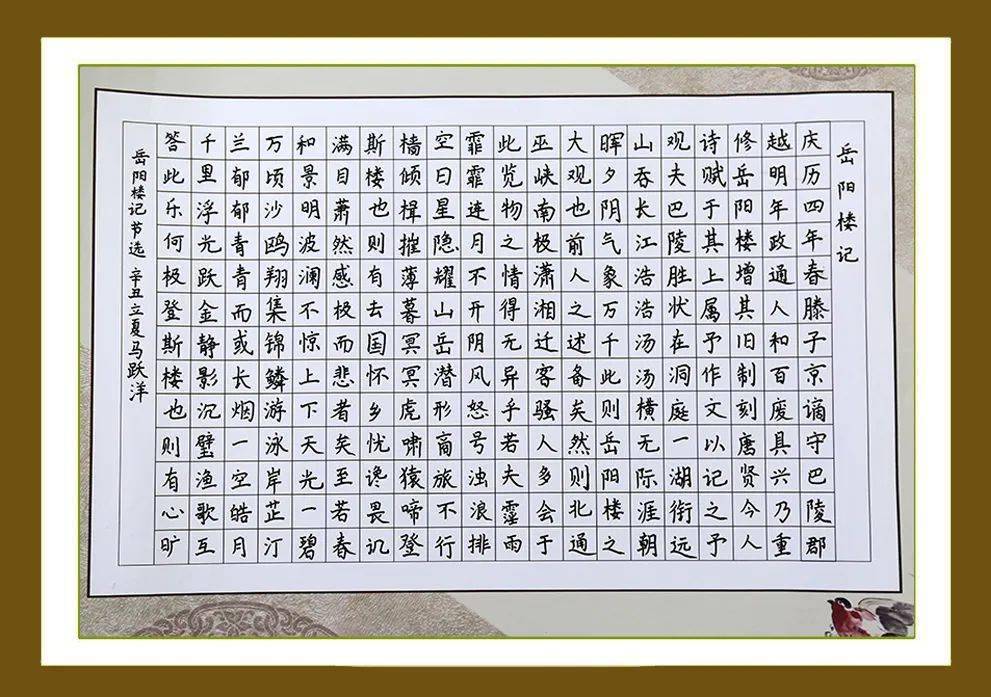 岳阳楼记
庆历四年春滕子京谪守巴陵郡
越明年政通人和百废具兴乃重
修岳阳楼增其旧制刻唐贤今人
诗赋于其上属予作文以记之予
观夫巴陵胜状在洞庭一湖衔远
山吞长江浩浩汤汤横无际涯朝
晖夕阴气象万千此则岳阳楼之
大观也前人之述备矣然则北通
巫峡南极潇湘迁客骚人多会于
此览物之情得无异乎若夫霪雨
霏霏连月不开阴风怒号浊浪排
空日星隐耀山岳潜形商旅不行
樯倾楫摧薄暮冥冥虎啸猿啼登
斯楼也则有去国怀乡忧谗畏讥
满目萧然感极而悲者矣至若春
和景明波澜不惊上下天光一碧
万顷沙鸥翔集锦鳞游泳岸芷汀
兰郁郁青青而或长烟一空皓月
千里浮光跃金静影沉璧渔歌互
答此乐何极登斯楼也则有心旷
岳阳楼记节选 辛丑立夏马跃洋